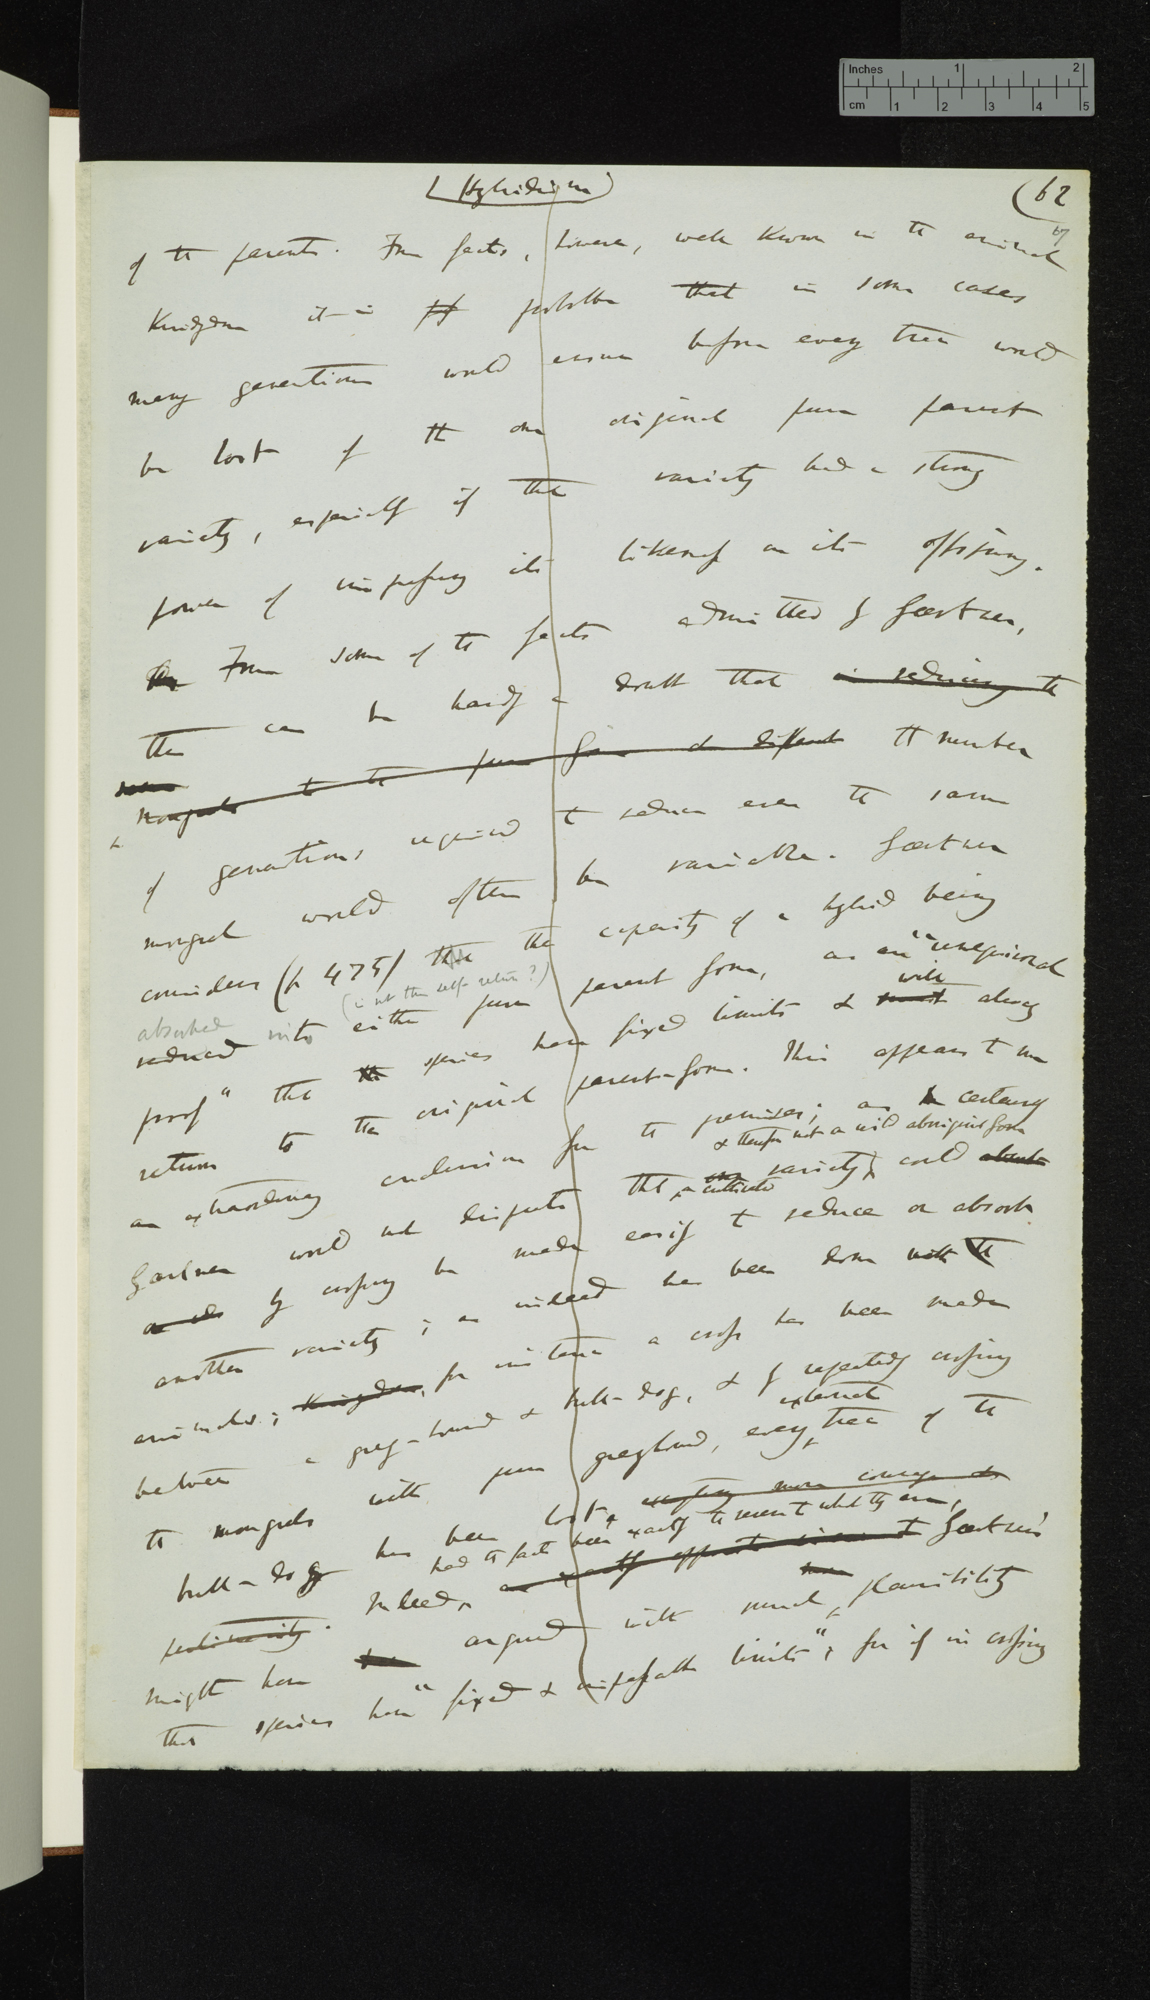 (Hybridism)
(62
of the parents. From facts, however, well known in the animal
Kingdom it is probable that in some cases
many generations would ensue before every trace would
be lost of the one original pure parent
variety, especially if the variety had a strong
power of impressing its likeness on its offspring.
From some of the facts admitted by Gaertner,
there can be hardly a doubt that in reducing the
mongrels to the pure form the number
of generations required to reduce even the same
mongrel would often be variable. Gaertner
considers (p 475) the capacity of a hybrid being
(is not this self-return?)
absorbed
reduced into either pure parent form, as an "unequivocal
proof" that species have fixed limits & must will always
return to the original parent-form. This appears to me
an extraordinary conclusion for the premises; as certainly
& therefore not a wild aboriginal form
Gaertner would not dispute that one a cultivated variety, could absorb
by crossing be made easily to reduce or absorb
another variety; as indeed has been done with the
animals; Kingdom, for instance a cross has been made
between a grey-hound & bull-dog, & by repeatedly crossing
the mongrels with pure greyhound, every external trace of the
bull-dog has been lost,
had the facts been exactly the reverse to what they are,
Indeed, an exactly opposite Gaertner
might have argued with much plausibility
that species have "fixed & impassable limits"; for if in crossing